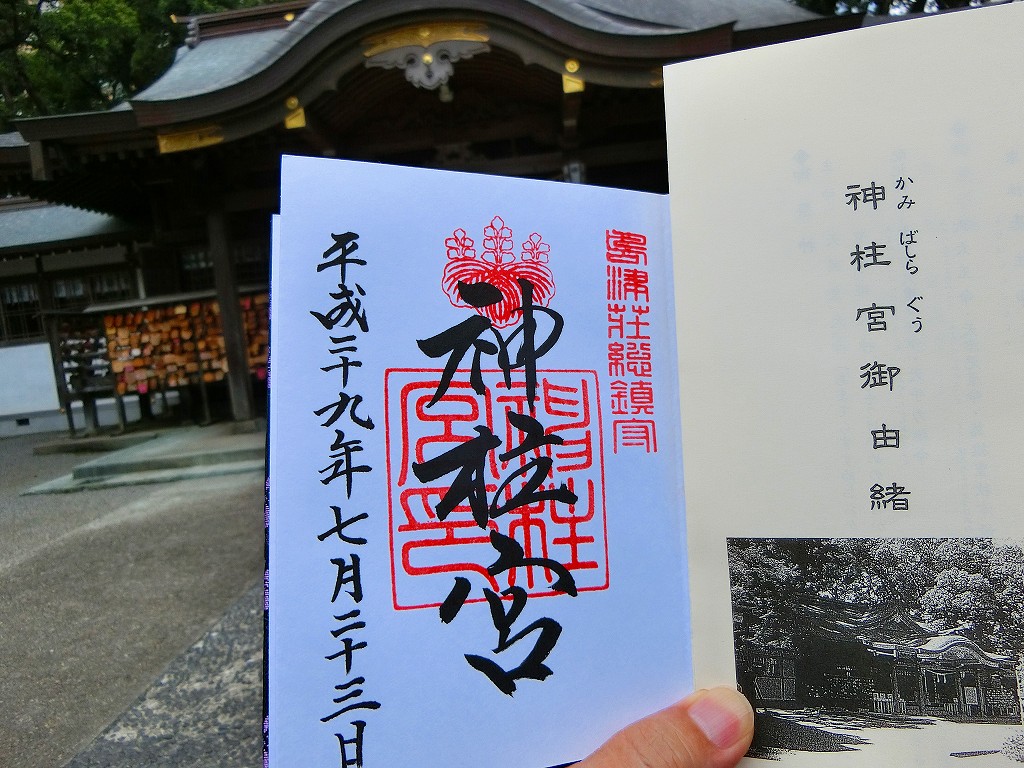 神柱宮御由緒
かみばしらぐう
島津荘総鎮守
神柱宮
神柱宮印
平成二十九年七月二十三日